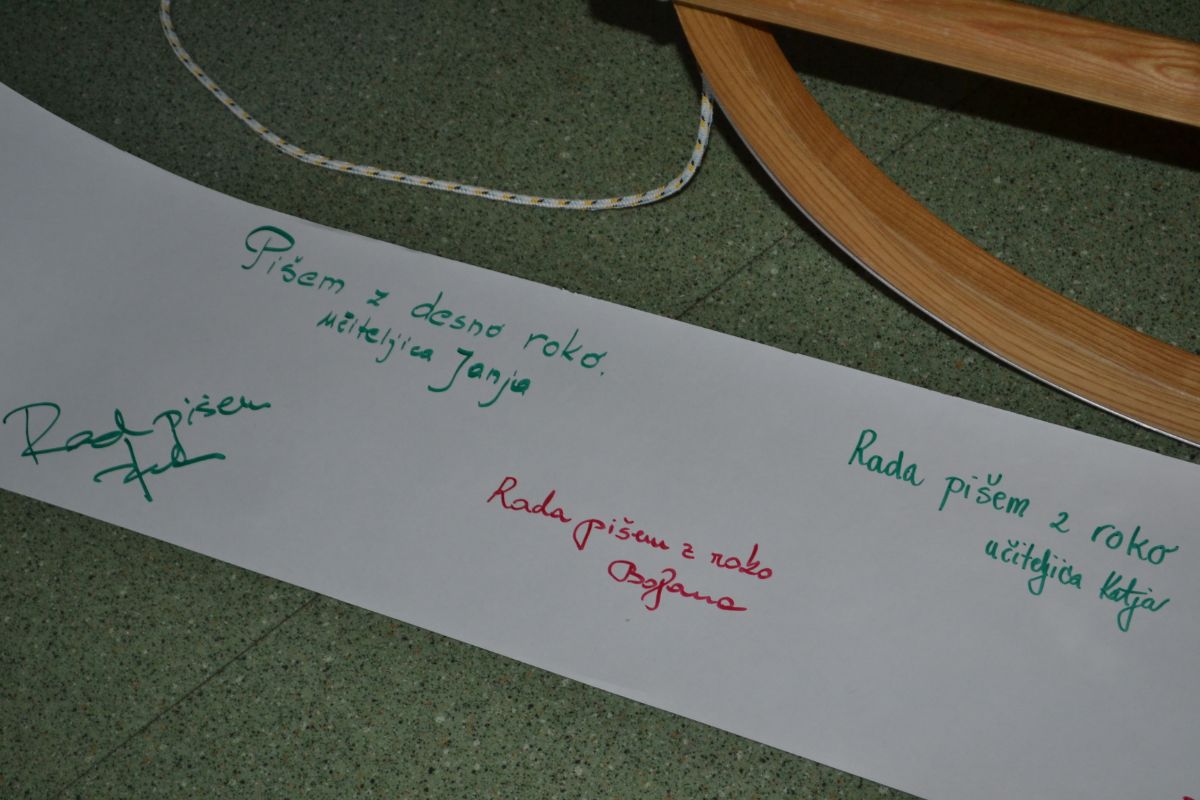 Pišem z desno roko.
učiteljica Janja
Rad pišem
Rada pišem z roko
Bojana
Rada pišem z roko
učiteljica Katja